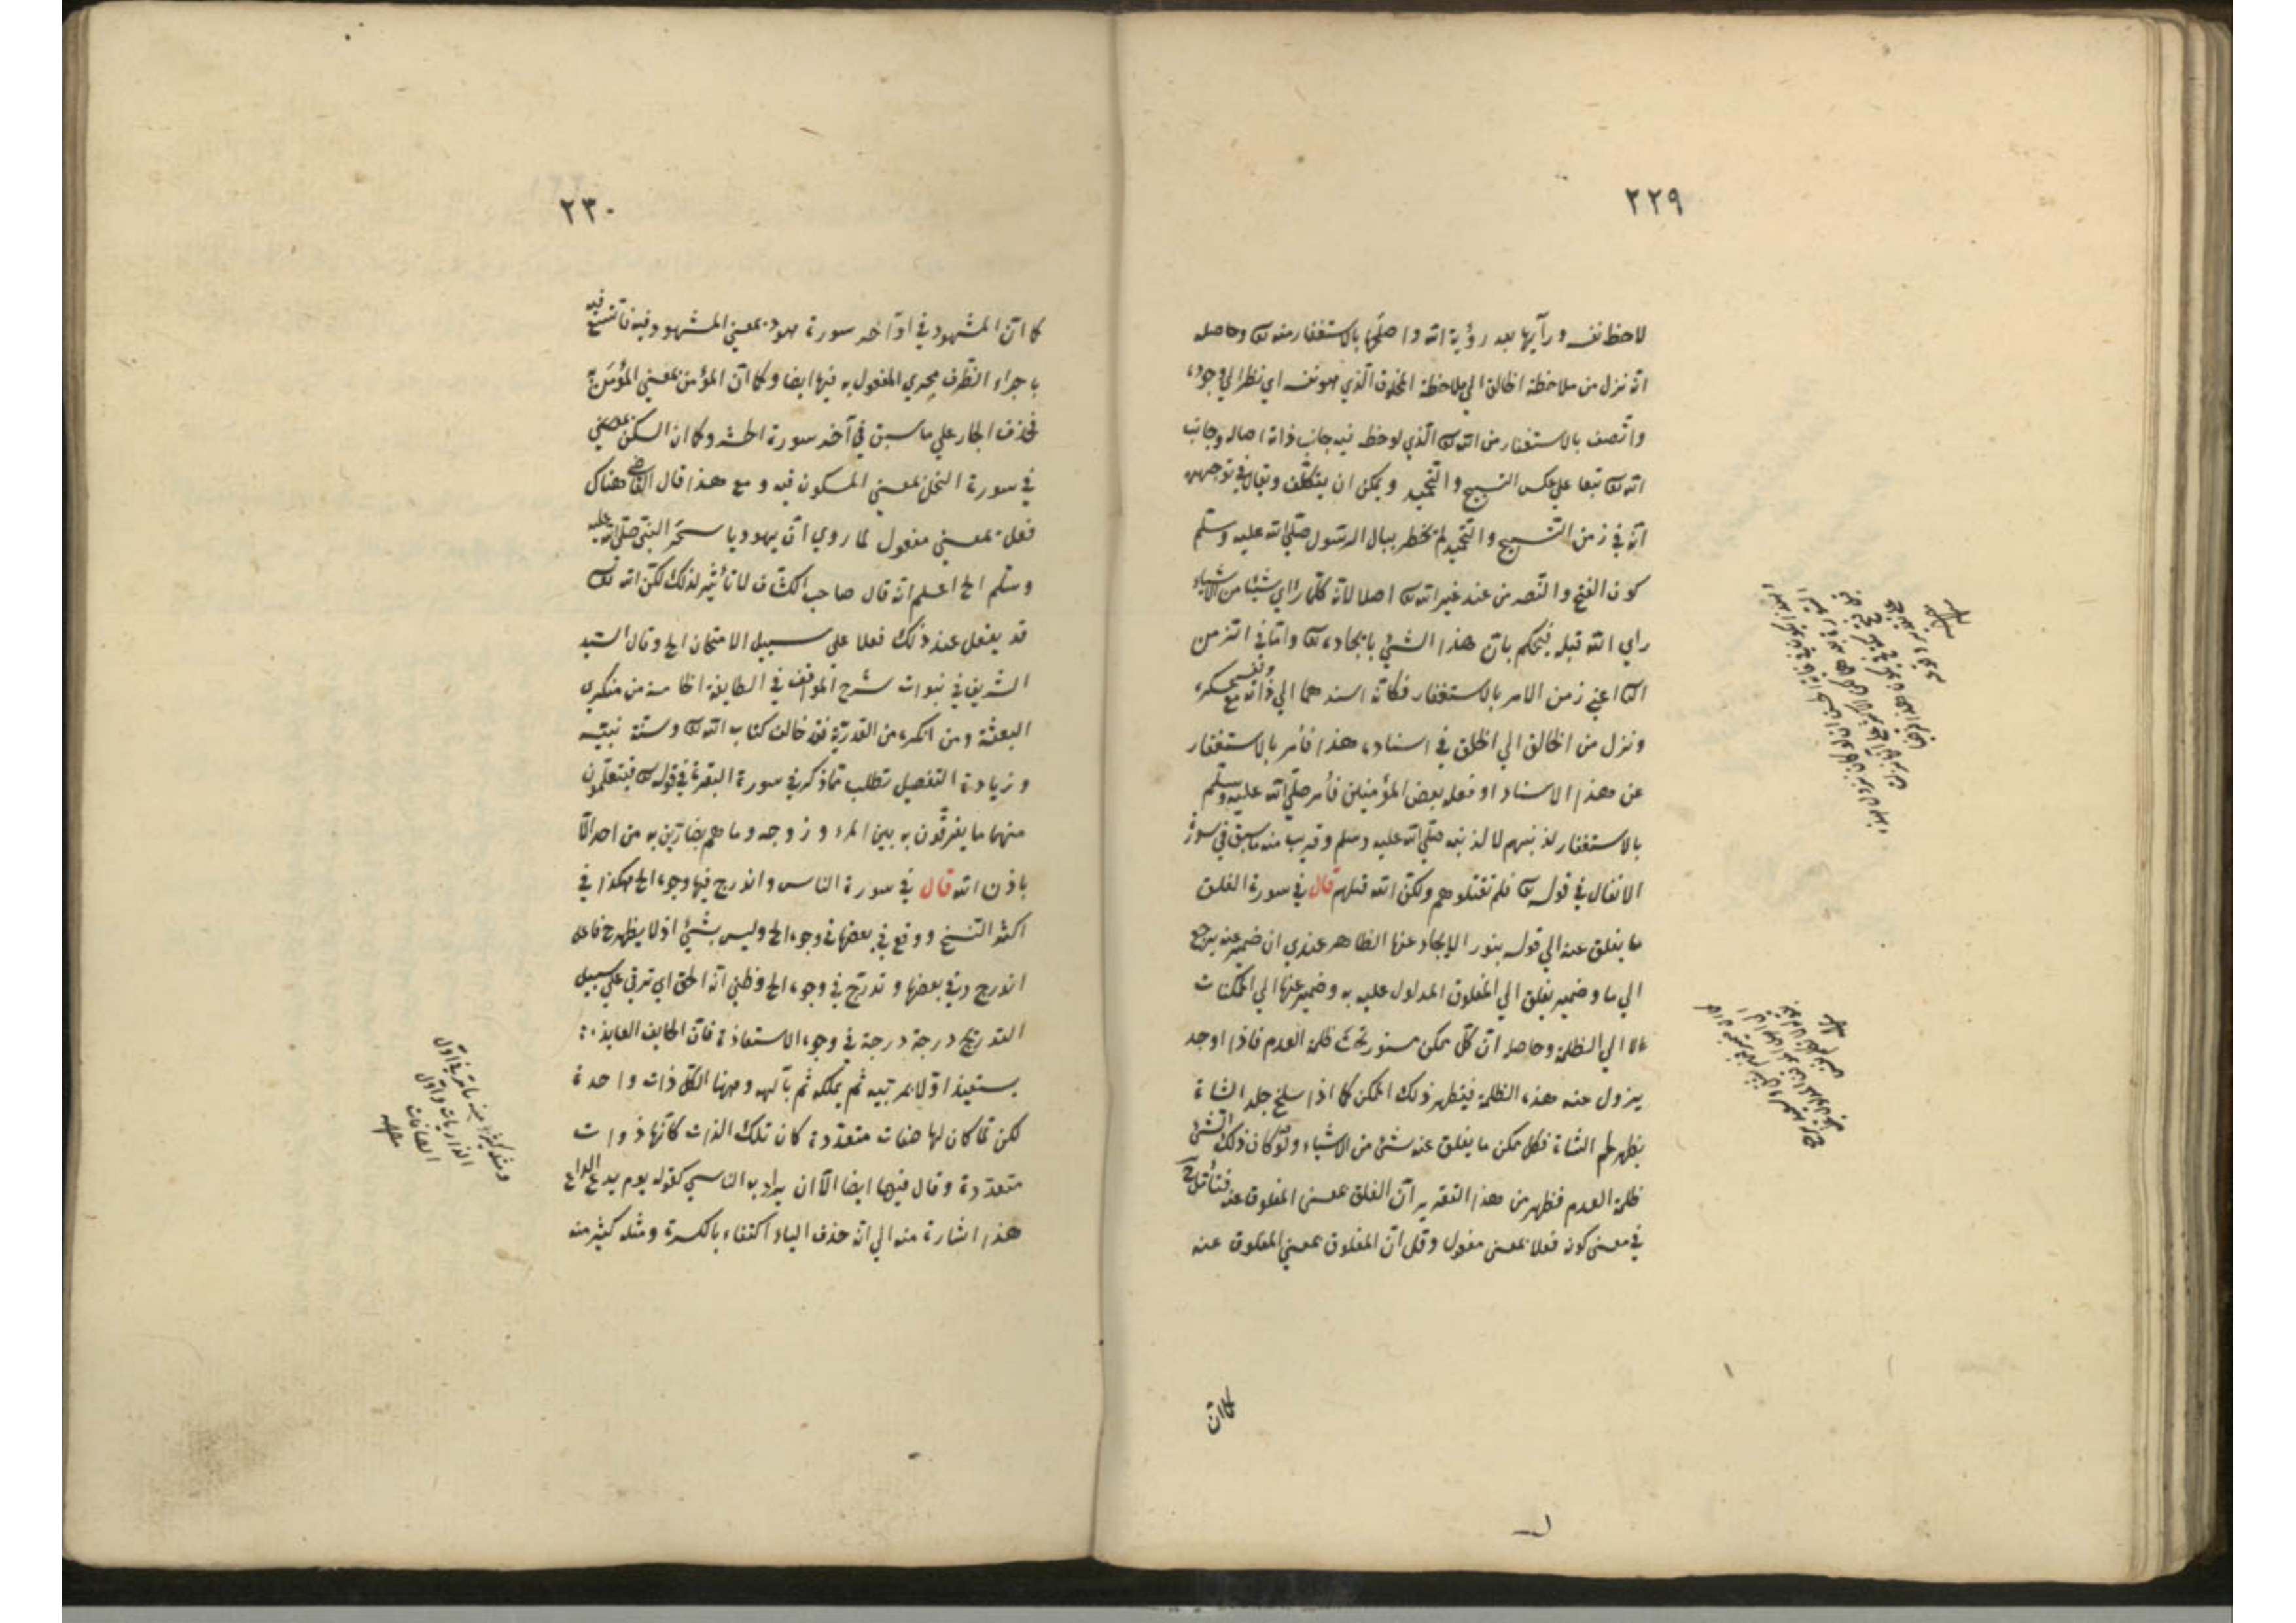 ٢٢٩
لاحظ نفسه ورآيها بعد رؤية الله واصلحها بالاستغفار منه تعالى وحاصله
انه نزل من ملاحظة الخالق الي ملاحظة المخلوق الذي هو نفسه اي نظر الي وجوده
واتصف بالاستغفار من الله تعالى الذي لوحظ فيه جانب ذاته اصالة وجانب
الله تعالى تبعا علي عكس التسبيح والتحميد ويمكن ان يتكلف ويقال في توجيهه
انه في زمن التسبيح والتحميد لم يخطر ببال الرسول صلي الله عليه وسلم
كون الفتح والنصر من عند غير الله تعالى اصلا لانه كلما رأي شيئا من الاشياء
راي الله قبله فيحكم بان هذا الشيئ بايجاده تعالى واما في الزمن
الآتي اعني زمن الامر بالاستغفار فكانه اسندهما الي ذاته مع عسكره
ونزل من الخالق الي الخلق في اسناده هذا فأمر بالاستغفار
عن هذا الاسناد او فعله بعض المؤمنين فأمر صلي الله عليه وسلم
بالاستغفار لذنبهم لا لذنبه صلي الله عليه وسلم وقريب منه ما سبق في سورة
الانفال في قوله تعالى فلم تقتلوهم ولكن الله قتلهم قال في سورة الفلق
ما يفلق عنه الي قوله بنور الايجاد عنها الظاهر عندي ان ضمير عنه يرجع
الي ما وضمير يفلق الي المفلوق المدلول عليه به وضمير عنها الي الممكنات
لا الي الظلمة وحاصله ان كل ممكن مستور تحت ظلمة العدم فاذا اوجد
يزول عنه هذه الظلمة فيظهر ذلك الممكن كما اذا سلخ جلد الشاة
يظهر لحم الشاة فكل ممكن ما يفلق عنه شئ من الاشياء ولو كان ذلك الشئ
ظلمة العدم فظهر من هذا التقرير ان الفلق بمعنى المفلوق عنه فتأمل
في معنى كون فعلا بمعنى مفعول وقل ان المفلوق بمعني المفلوق عنه
كما ان
٢٣٠
كما ان المشهود في اواخر سورة هود بمعني المشهود فيه فاتسع فيه
باجراء الظرف مجري المفعول به فيها ايضا وكما ان المؤمن بمعني المؤمن به
فحذف الجار علي ما سبق في آخر سورة الحشر وكما ان السكن بمعني
في سورة النحل بمعني المسكون فيه ومع هذا قال القاضي هناك
فعل بمعني مفعول لما روي ان يهوديا سحر النبي صلي الله عليه
وسلم الخ اعلم انه قال صاحب الكشاف لا تأثير لذلك لكن الله تعالى
قد يفعل عند ذلك فعلا علي سبيل الامتحان الخ وقال السيد
الشريف في نبوات شرح المواقف في الطايفة الخامسة من منكري
البعثة ومن انكره من القدرية فقد خالف كتاب الله تعالى وسنة نبيه
وزيادة التفصيل تطلب مما ذكر في سورة البقرة في قوله تعالى فيتعلمون
منهما ما يفرقون به بين المرء وزوجه وما هم بضارين به من احد الا
باذن الله قال في سورة الناس واندرج فيها وجوه الخ هكذا في
اكثر النسخ ووقع في بعضها في وجوه الخ وليس بشئ اذ لا يظهر ح فاعل
اندرج وفي بعضها وتدرج في وجوه الخ وظني انه الحق اي ترقي علي سبيل
التدريج درجة درجة في وجوه الاستعاذة فان الخايف العايذ
يستعيذ اولا بمربيه ثم بملكه ثم بآلهه وههنا الكل ذات واحدة
لكن لما كان لها صفات متعددة كان تلك الذات كأنها ذوات
متعددة وقال فيها ايضا الا ان يراد به الناسي كقوله يوم يدع الداع
هذا اشارة منه الي انه حذف الياء اكتفاء بالكسرة ومثله كثير منه
ومثله كثير منه ما مر في اول
الذاريات واول
الصافات
منه